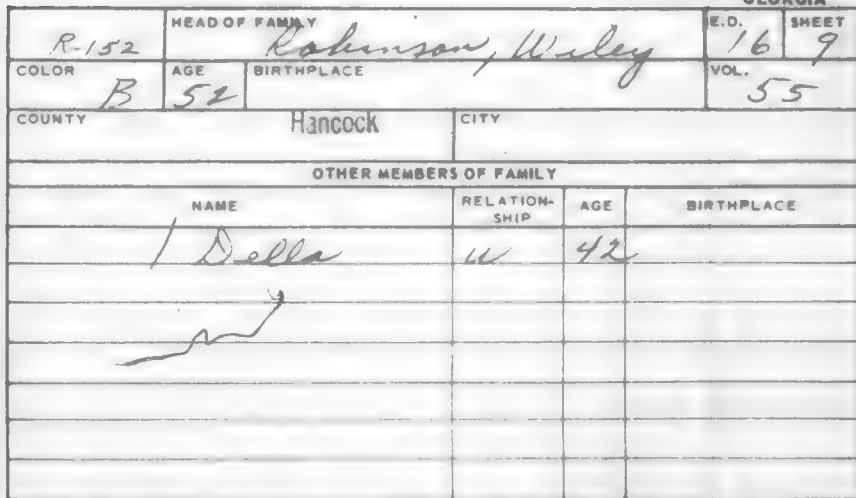 GEORGIA
R-152 HEAD OF FAMILY Robinson, Wiley E.D. 16 SHEET 9
COLOR B AGE 52 BIRTHPLACE VOL. 55
COUNTY Hancock CITY
OTHER MEMBERS OF FAMILY
NAME RELATION-SHIP AGE BIRTHPLACE
/ Della W 42